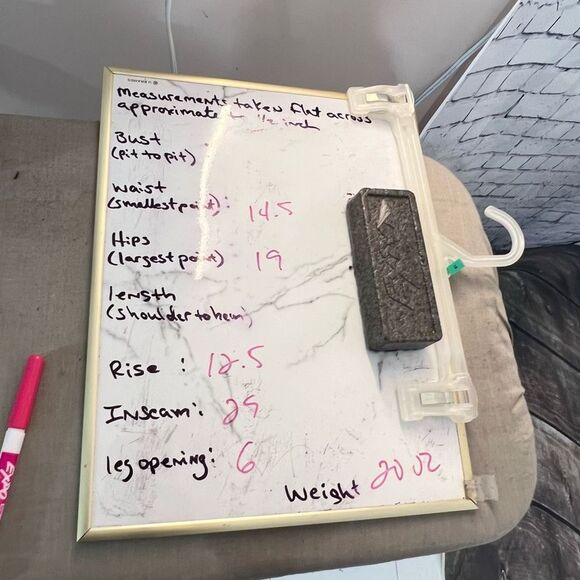 Measurements taken flat across
approximate 1/2 inch
Bust
(pit to pit)
Waist
(smallest point): 14.5
Hips
(largest point) 19
length
(shoulder to hem)
Rise : 12.5
Inseam: 29
leg opening: 6
Weight 20 oz
EXPO